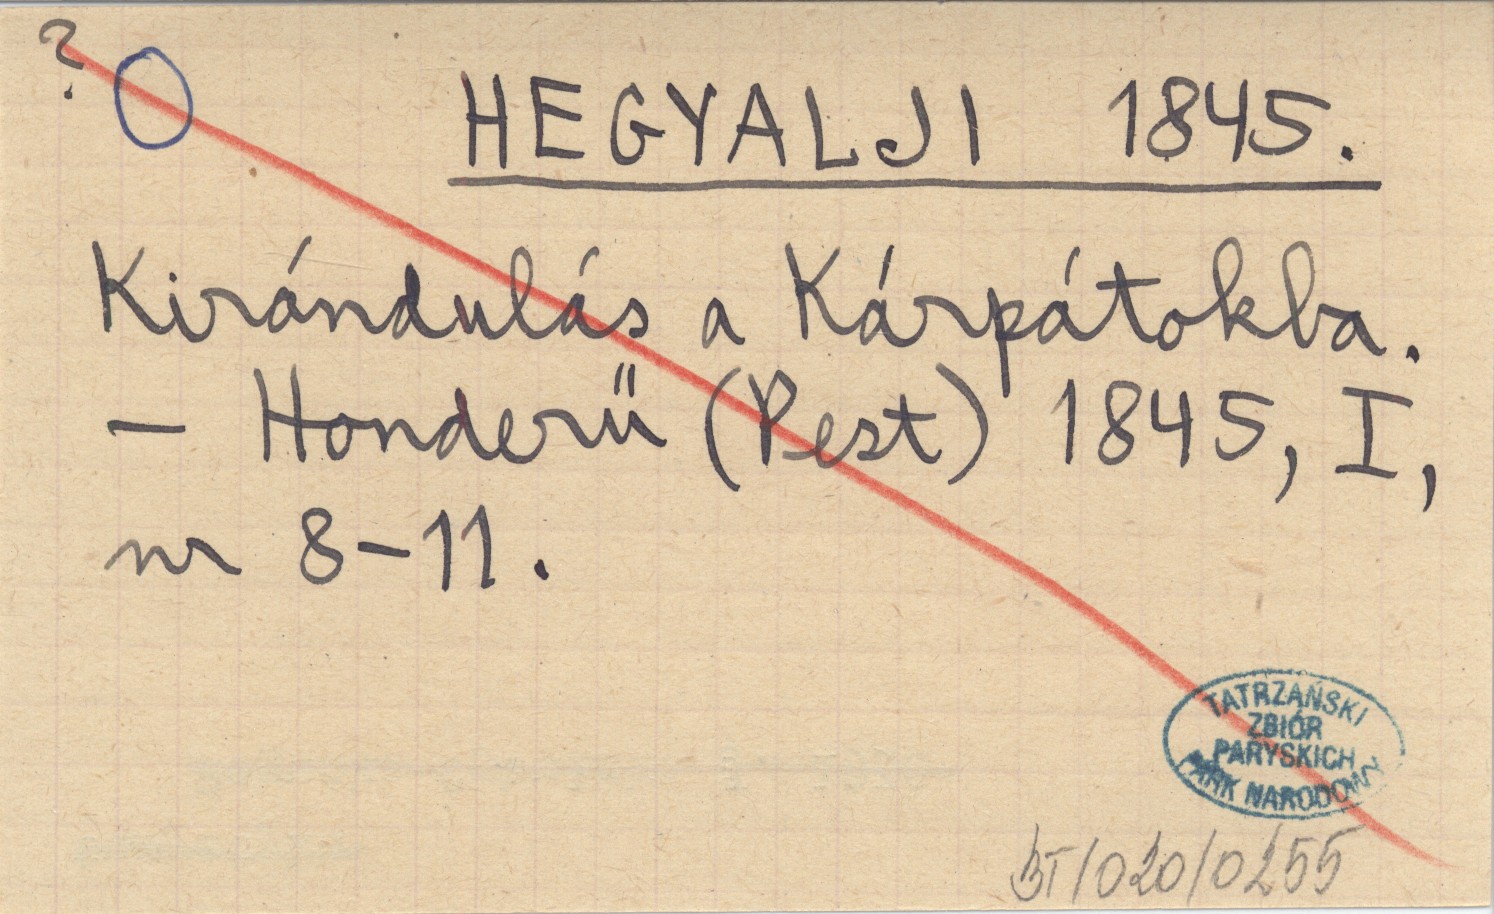 ?
HEGYALJI 1845.
Kirándulás a Kárpátokba.
– Honderű (Pest) 1845, I,
nr 8–11.
TATRZAŃSKI
ZBIÓR
PARYSKICH
PARK NARODOWY
BT/020/0255